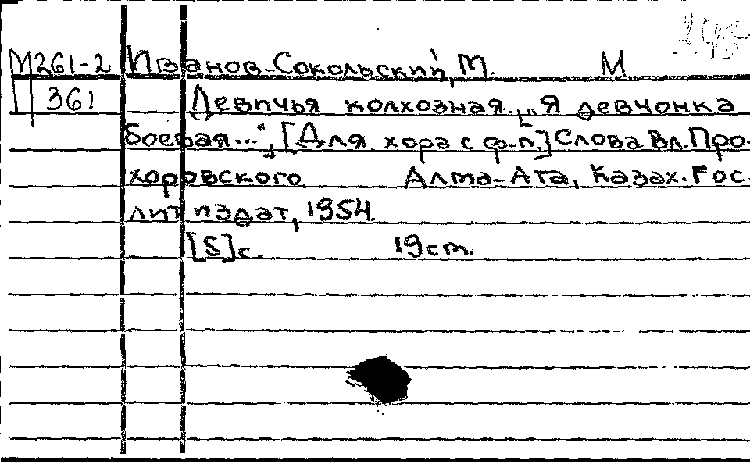 М261-2 Иванов-Сокольский, М. М
361 Девичья колхозная. „Я девчонка
боевая...", [Для хора с ф-п.] Слова Вл. Про-
хоровского Алма-Ата, Казах. Гос.
лит издат, 1954.
[5]с. 19 cm.